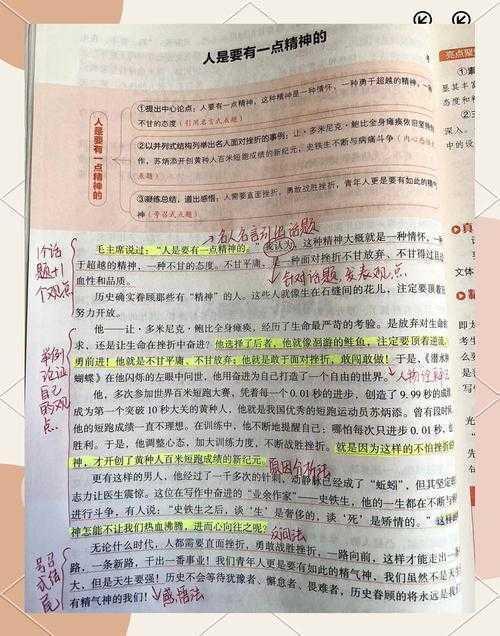 人是要有一点精神的
亮点聚
人是要有一点精神的
①提出中心论点：人要有一点精神，这种精神是一种情怀，一种勇于超越的精神，一
不甘的态度（引用名言式点题）
②以并列式结构列举出名人面对挫折的事例：让·多米尼克·鲍比全身瘫痪依旧坚持
作，苏炳添开创黄种人百米短跑成绩的新纪元，史铁生不断与病痛斗争（内心感
点题）
③凝练总结，道出感悟：人需要直面挫折，勇敢战胜挫折，青年人更是要有如此的精气
神（号召式点题）
名人名言引出话题
毛主席说过：“人是要有一点精神的。”我认为，这种精神大概就是一种情怀，一种勇
于超越的精神，一种不甘的态度。不甘平庸，一种面对挫折不甘放弃、不甘得过且
血性和品质。
针对话题，发表观点
1个话题+1个观点
历史确实眷顾那些有“精神”的人。这些人就像生在石缝间的花儿，注定要顶着
努力开放。
他——让·多米尼克·鲍比全身瘫痪，经历了生命最严苛的考验。是放弃对生命
求，还是让生命在挫折中奋进？他选择了后者，他就像洄游的鲑鱼，注定要顶着逆流，
勇前进！他就是不甘平庸，不甘放弃；他就是敢于面对挫折，敢闯敢做！于是，《潜水钟
蝴蝶》在他闪烁的左眼中问世，他用奋进为自己打造了一个自由的世界。
举例论证自己的观点
他，多次参加世界百米短跑大赛，凭着每一个 0.01 秒的进步，创造了 9.99 秒的成
成为第一个突破 10 秒大关的黄种人，他就是我国优秀的短跑运动员苏炳添。曾有段时
他的短跑成绩一直不理想。在训练中，他不断地提醒自己：哪怕每次只进步 0.01 秒，也
胜利。于是，他调整心态，加大训练力度，不断战胜挫折。就是因为这样的不怕挫折的
神，才开创了黄种人百米短跑成绩的新纪元。
原因分析法
更有这样的男人，他经过了一千多次的针刺，动静脉已经成了“蚯蚓”，但其坚定
志力让医生震惊。这位在写作中奋进的“业余作家”——史铁生，他的一生都在不断与
进行斗争，有人说：“史铁生之后，谈‘生’是奢侈的，谈‘死’是矫情的。”这样的
神怎能不让我们热血沸腾，进而心向往之呢？
反问法
无论什么时代，人都需要直面挫折，勇敢战胜挫折，一路向前，这样才能走出一
路，一条新路，干出一番事业！我们青年人更是要有如此的精气神，我们虽然不是天
大，但是天生要强！历史不会等待犹豫者、懈怠者、畏难者，历史眷顾的将永远是我们
有精气神的我们！
感悟法
号召式结尾